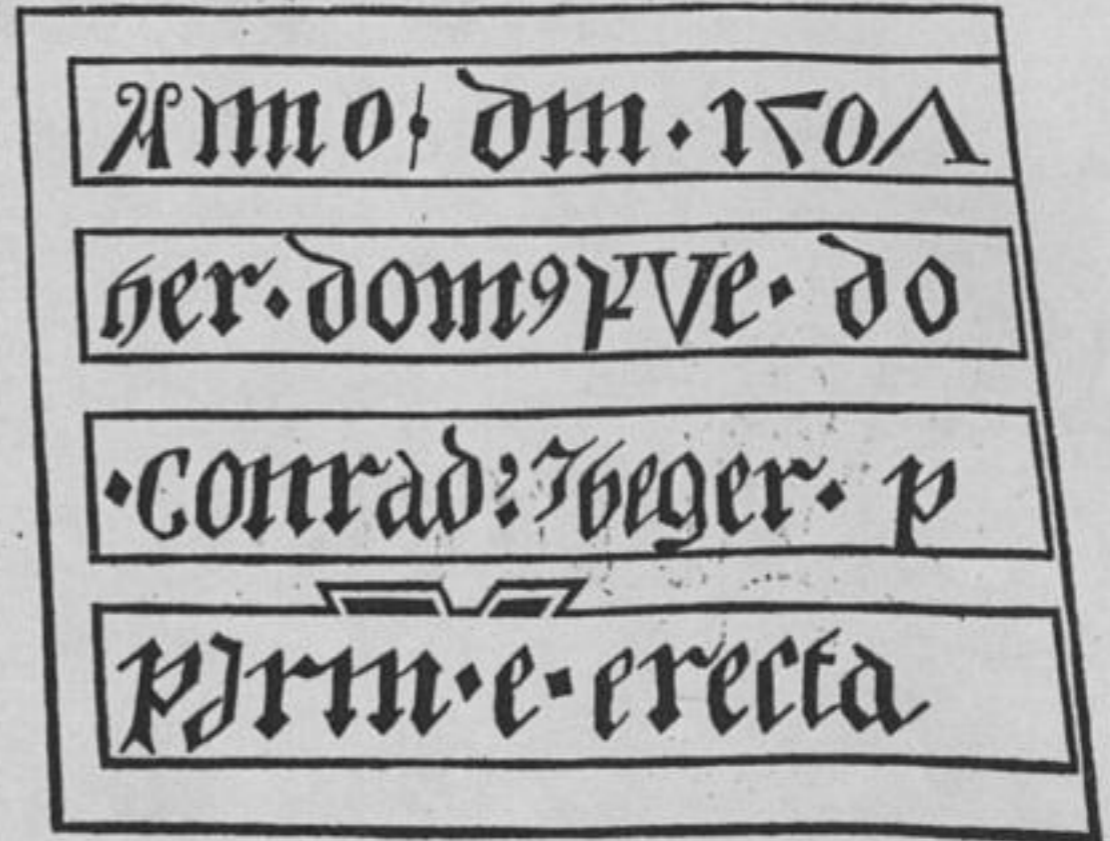 Anno : dni · 1507
her · dom9 fve · do
· Conrad? Jheger · p
pdrm · e · erecta